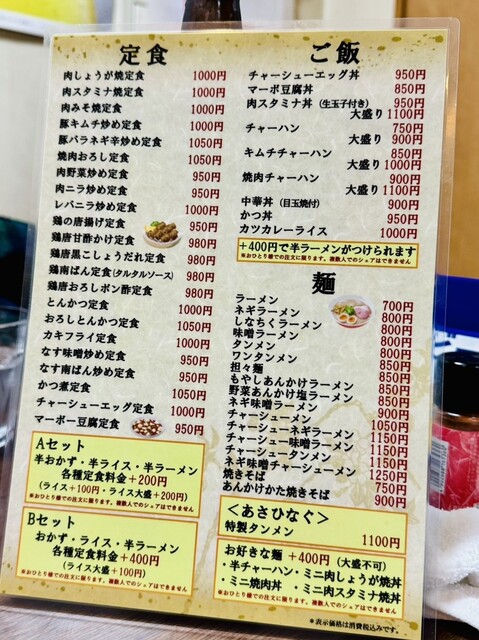 定食
肉しょうが焼定食 1000円
肉スタミナ焼定食 1000円
肉みそ焼定食 1000円
豚キムチ炒め定食 1000円
豚バラネギ辛炒め定食 1050円
焼肉おろし定食 1050円
肉野菜炒め定食 950円
肉ニラ炒め定食 950円
レバニラ炒め定食 1000円
鶏の唐揚げ定食 950円
鶏唐甘酢かけ定食 980円
鶏唐黒こしょうだれ定食 980円
鶏南ばん定食(タルタルソース) 980円
鶏唐おろしポン酢定食 980円
とんかつ定食 1000円
おろしとんかつ定食 1050円
カキフライ定食 1000円
なす味噌炒め定食 950円
なす南ばん炒め定食 950円
かつ煮定食 1050円
チャーシューエッグ定食 1000円
マーボー豆腐定食 950円
Aセット
半おかず・半ライス・半ラーメン
各種定食料金+200円
(ライス+100円・ライス大盛+200円)
※おひとり様での注文に限ります。複数人でのシェアはできません
Bセット
おかず・ライス・半ラーメン
各種定食料金+400円
(ライス大盛+100円)
※おひとり様での注文に限ります。複数人でのシェアはできません
ご飯
チャーシューエッグ丼 950円
マーボ豆腐丼 850円
肉スタミナ丼(生玉子付き) 950円
大盛り1100円
チャーハン 750円
大盛り 900円
キムチチャーハン 850円
大盛り1000円
焼肉チャーハン 900円
大盛り1100円
中華丼(目玉焼付) 900円
かつ丼 950円
カツカレーライス 1000円
+400円で半ラーメンがつけられます
※おひとり様での注文に限ります。複数人でのシェアはできません
麺
ラーメン 700円
ネギラーメン 800円
しなちくラーメン 800円
味噌ラーメン 800円
タンメン 800円
ワンタンメン 800円
担々麺 850円
もやしあんかけラーメン 850円
野菜あんかけ塩ラーメン 850円
ネギ味噌ラーメン 900円
チャーシューメン 1050円
チャーシューネギラーメン 1150円
チャーシュー味噌ラーメン 1150円
チャーシュータンメン 1150円
ネギ味噌チャーシューメン 1250円
焼きそば 750円
あんかけかた焼きそば 900円
<あさひなぐ>
特製タンメン 1100円
お好きな麺 +400円(大盛不可)
・半チャーハン・ミニ肉しょうが焼丼
・ミニ焼肉丼 ・ミニ肉スタミナ焼丼
※おひとり様での注文に限ります。複数人でのシェアはできません
＊表示価格は消費税込みです。